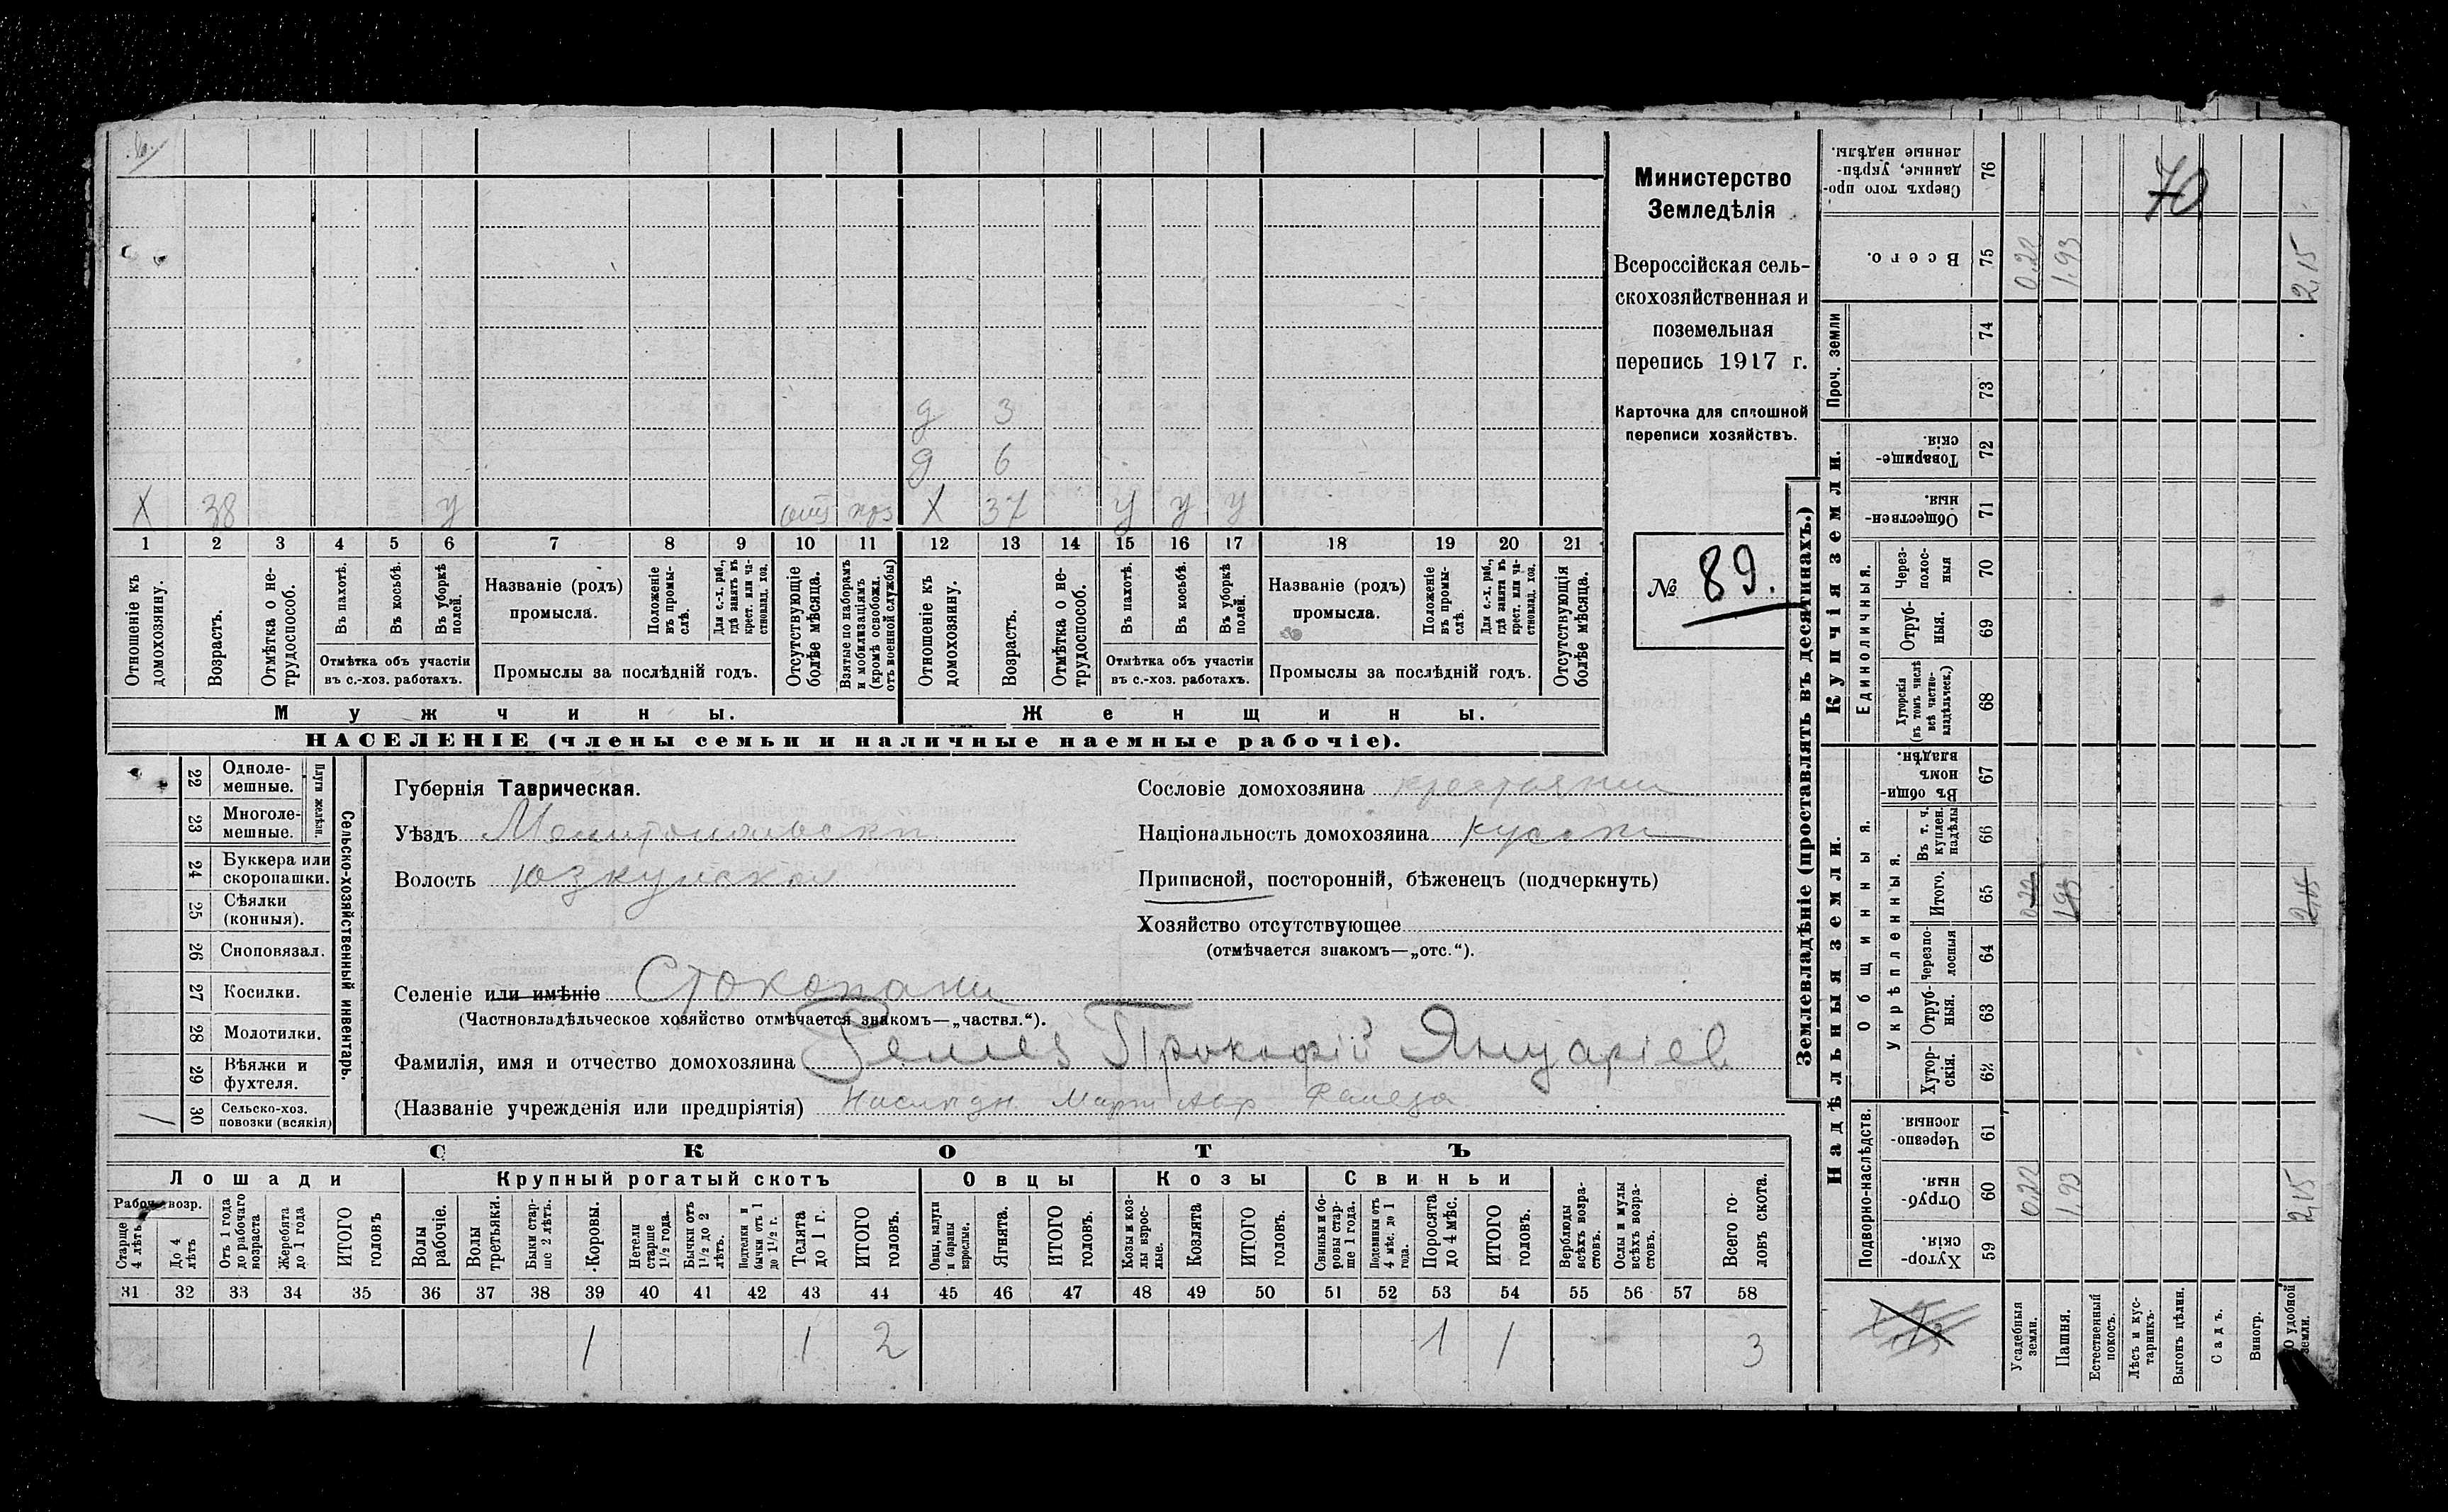 Министерство
Земледѣлія
Всероссійская сель-
скохозяйственная и
поземельная
перепись 1917 г.
Карточка для сплошной
переписи хозяйствъ.
№ 89.
д 3
д 6
X 38 у отс X 37 у у у
1 2 3 4 5 6 7 8 9 10 11 12 13 14 15 16 17 18 19 20 21
Отношеніе къ домохозяину.
Возрастъ.
Отмѣтка о не-трудоспособ.
Въ пахотѣ.
Въ косьбѣ.
Въ уборкѣ полей.
Отмѣтка объ участіи
въ с.-хоз. работахъ.
Названіе (родъ)
промысла.
Положеніе въ промы-слѣ.
Для с.-х. раб., гдѣ занятъ въ крест. или ча-стновлад. хоз.
Промыслы за послѣдній годъ.
Отсутствующіе болѣе мѣсяца.
Взятые по наборамъ и мобилизаціямъ (кромѣ освобожд. отъ военной службы)
Отношеніе къ домохозяину.
Возрастъ.
Отмѣтка о не-трудоспособ.
Въ пахотѣ.
Въ косьбѣ.
Въ уборкѣ полей.
Отмѣтка объ участіи
въ с.-хоз. работахъ.
Названіе (родъ)
промысла.
Положеніе въ промы-слѣ.
Для с.-х. раб., гдѣ занята въ крест. или ча-стновлад. хоз.
Промыслы за послѣдній годъ.
Отсутствующія болѣе мѣсяца.
Мужчины.
Женщины.
НАСЕЛЕНІЕ (члены семьи и наличные наемные рабочіе).
Сельско-хозяйственный инвентарь.
Плуги желѣзн.
22 Одноле-мешные.
23 Многоле-мешные.
24 Буккера или скоропашки.
25 Сѣялки (конныя).
26 Сноповязал.
27 Косилки.
28 Молотилки.
29 Вѣялки и фухтеля.
30 Сельско-хоз. повозки (всякія) 1
Губернія Таврическая.
Уѣздъ
Волость Юзкуйская
Сословіе домохозяина крестьянин
Національность домохозяина
Приписной, посторонній, бѣженецъ (подчеркнуть)
Хозяйство отсутствующее
(отмѣчается знакомъ—„отс.“).
Селеніе или имѣніе Стокопани
(Частновладѣльческое хозяйство отмѣчается знакомъ—„частвл.“).
Фамилія, имя и отчество домохозяина Прокофій Януаріев
(Названіе учрежденія или предпріятія)
СКОТЪ
Лошади
Крупный рогатый скотъ
Овцы
Козы
Свиньи
Рабоч. возр.
Старше 4 лѣтъ.
До 4 лѣтъ
Отъ 1 года до рабочаго возраста
Жеребята до 1 года
ИТОГО головъ
Волы рабочіе.
Волы третьяки.
Быки стар-ше 2 лѣтъ.
Коровы.
Нетели старше 1½ года.
Бычки отъ 1½ до 2 лѣтъ.
Подтелки и бычки отъ 1 до 1½ г.
Телята до 1 г.
ИТОГО головъ.
Овцы, валухи и бараны взрослые.
Ягнята.
ИТОГО головъ.
Козы и коз-лы взрос-лые.
Козлята
ИТОГО головъ.
Свиньи и бо-ровы стар-ше 1 года.
Подсвинки отъ 4 мѣс. до 1 года.
Поросята до 4 мѣс.
ИТОГО головъ.
Верблюды всѣхъ возра-стовъ.
Ослы и мулы всѣхъ возра-стовъ.
Всего го-ловъ скота.
31 32 33 34 35 36 37 38 39 40 41 42 43 44 45 46 47 48 49 50 51 52 53 54 55 56 57 58
1 1 2 1 1 3
Землевладѣніе (проставлять въ десятинахъ.)
Надѣльныя земли.
Купчія земли.
Проч. земли
Подворно-наслѣдств.
Общинныя.
Укрѣпленныя.
Единоличныя.
Сверхъ того про-данные, укрѣп-ленные надѣлы. 76
Всего. 75 0,22 1,93 2,15
74
73
Товарище-скія. 72
Обществен-ныя. 71
Через-полос-ныя 70
Отруб-ныя. 69
Хуторскія (въ томъ числѣ всѣ частно-владѣльческ.) 68
Въ общи-номъ владѣн. 67
Въ т. ч. куплен. надѣлы 66
Итого. 65 0,22 1,93 2,15
Черезпо-лосныя 64
Отруб-ныя. 63
Хутор-скія. 62
Черезпо-лосныя. 61
Отруб-ныя. 60 0,22 1,93 2,15
Хутор-скія. 59
Усадебныя земли.
Пашня.
Естественный покосъ.
Лѣсъ и кус-тарникъ.
Выгонъ цѣлин.
Садъ.
Виногр.
удобной земли.
70